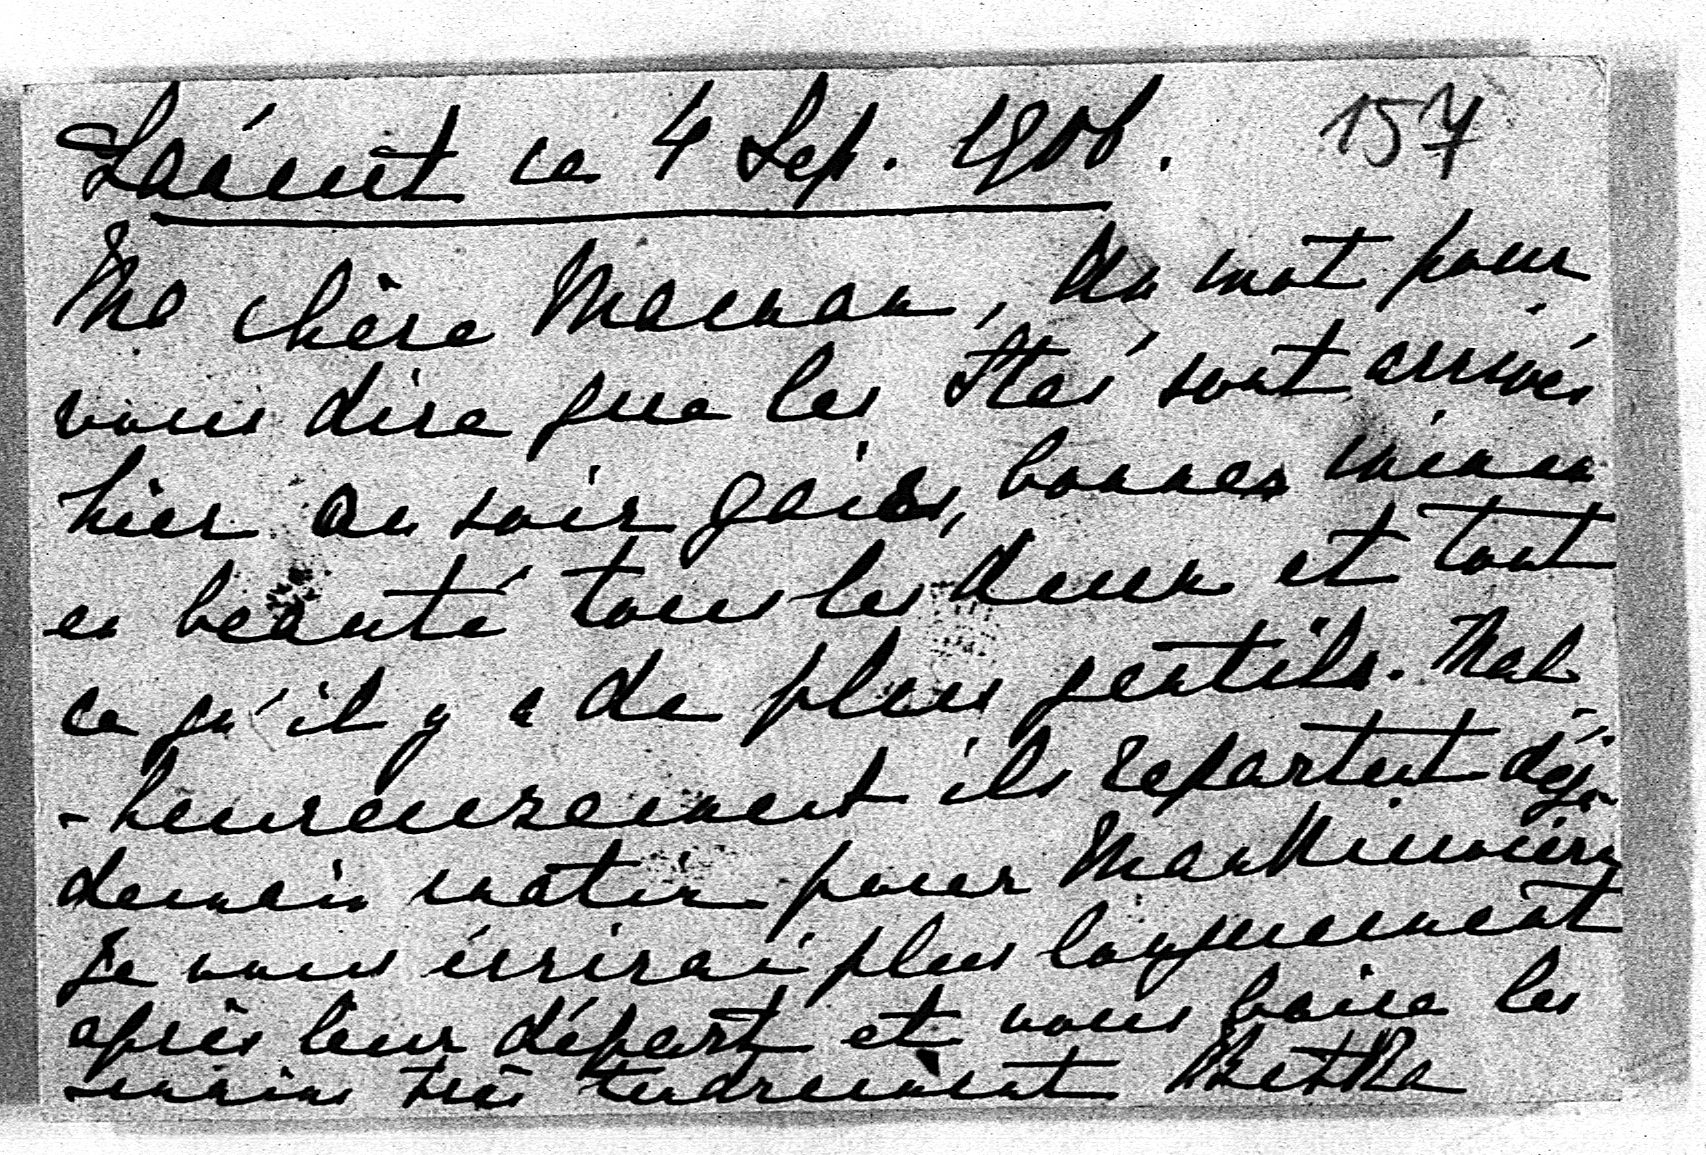 Laáent ce 4 Sep. 1906. 157
Ma chère Maman, Un mot pour
vous dire que les sont arrivés
hier au soir gais, bonnes mines
en beauté tous les deux et tout
ce qu'il y a de plus gentils. Mal
-heureusement ils repartent déjà
demain matin pour
Je vous écrirai plus longuement
après leur départ et vous baise les
mains très tendrement